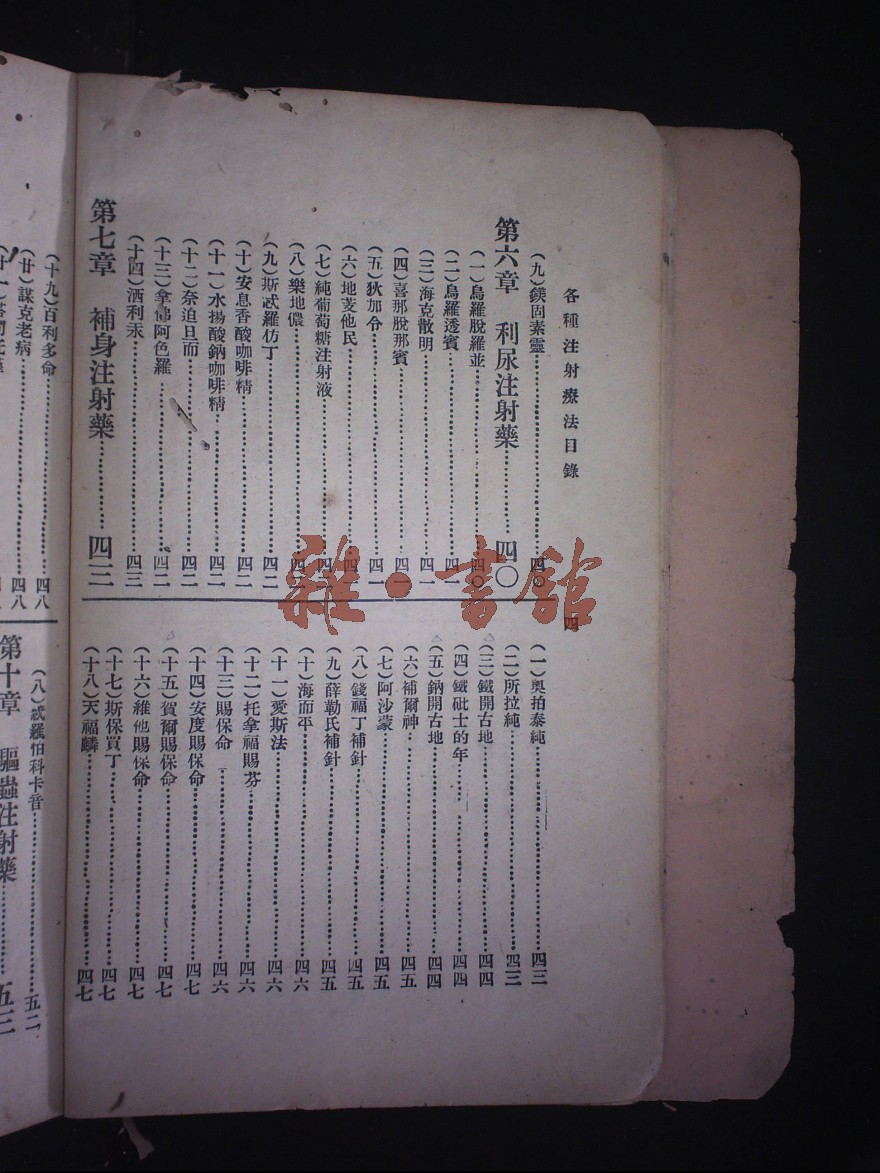 各種注射療法目錄
四
(九)鎂固素靈……四〇
第六章 利尿注射藥……四〇
(一)烏羅脫羅並……四〇
(二)烏羅透賓……四一
(三)海克散明……四一
(四)喜那脫那賓……四一
(五)狄加令……四一
(六)地芰他民……四二
(七)純葡萄糖注射液……四二
(八)樂地儂……四二
(九)斯忒羅仿丁……四二
(十)安息香酸咖啡精……四二
(十一)水揚酸鈉咖啡精……四二
(十二)奈迫旦而……四二
(十三)拿佛阿色羅……四二
(十四)洒利汞……四三
第七章 補身注射藥……四三
(一)奧拍泰純……四三
(二)所拉純……四三
(三)鐵開古地……四四
(四)鐵砒士的年……四四
(五)鈉開古地……四四
(六)補爾神……四五
(七)阿沙蒙……四五
(八)錢福丁補針……四五
(九)薛勒氏補針……四五
(十)海而平……四六
(十一)愛斯法……四六
(十二)托拿福賜芬……四六
(十三)賜保命……四六
(十四)安度賜保命……四七
(十五)賀爾賜保命……四七
(十六)維他賜保命……四七
(十七)斯保買丁……四七
(十八)天福麟……四七
(十九)百利多命……四八
(廿)謀克老病……四八
(八)忒羅怕科卡音……五二
第十章 驅蟲注射藥……五三
雜·書館